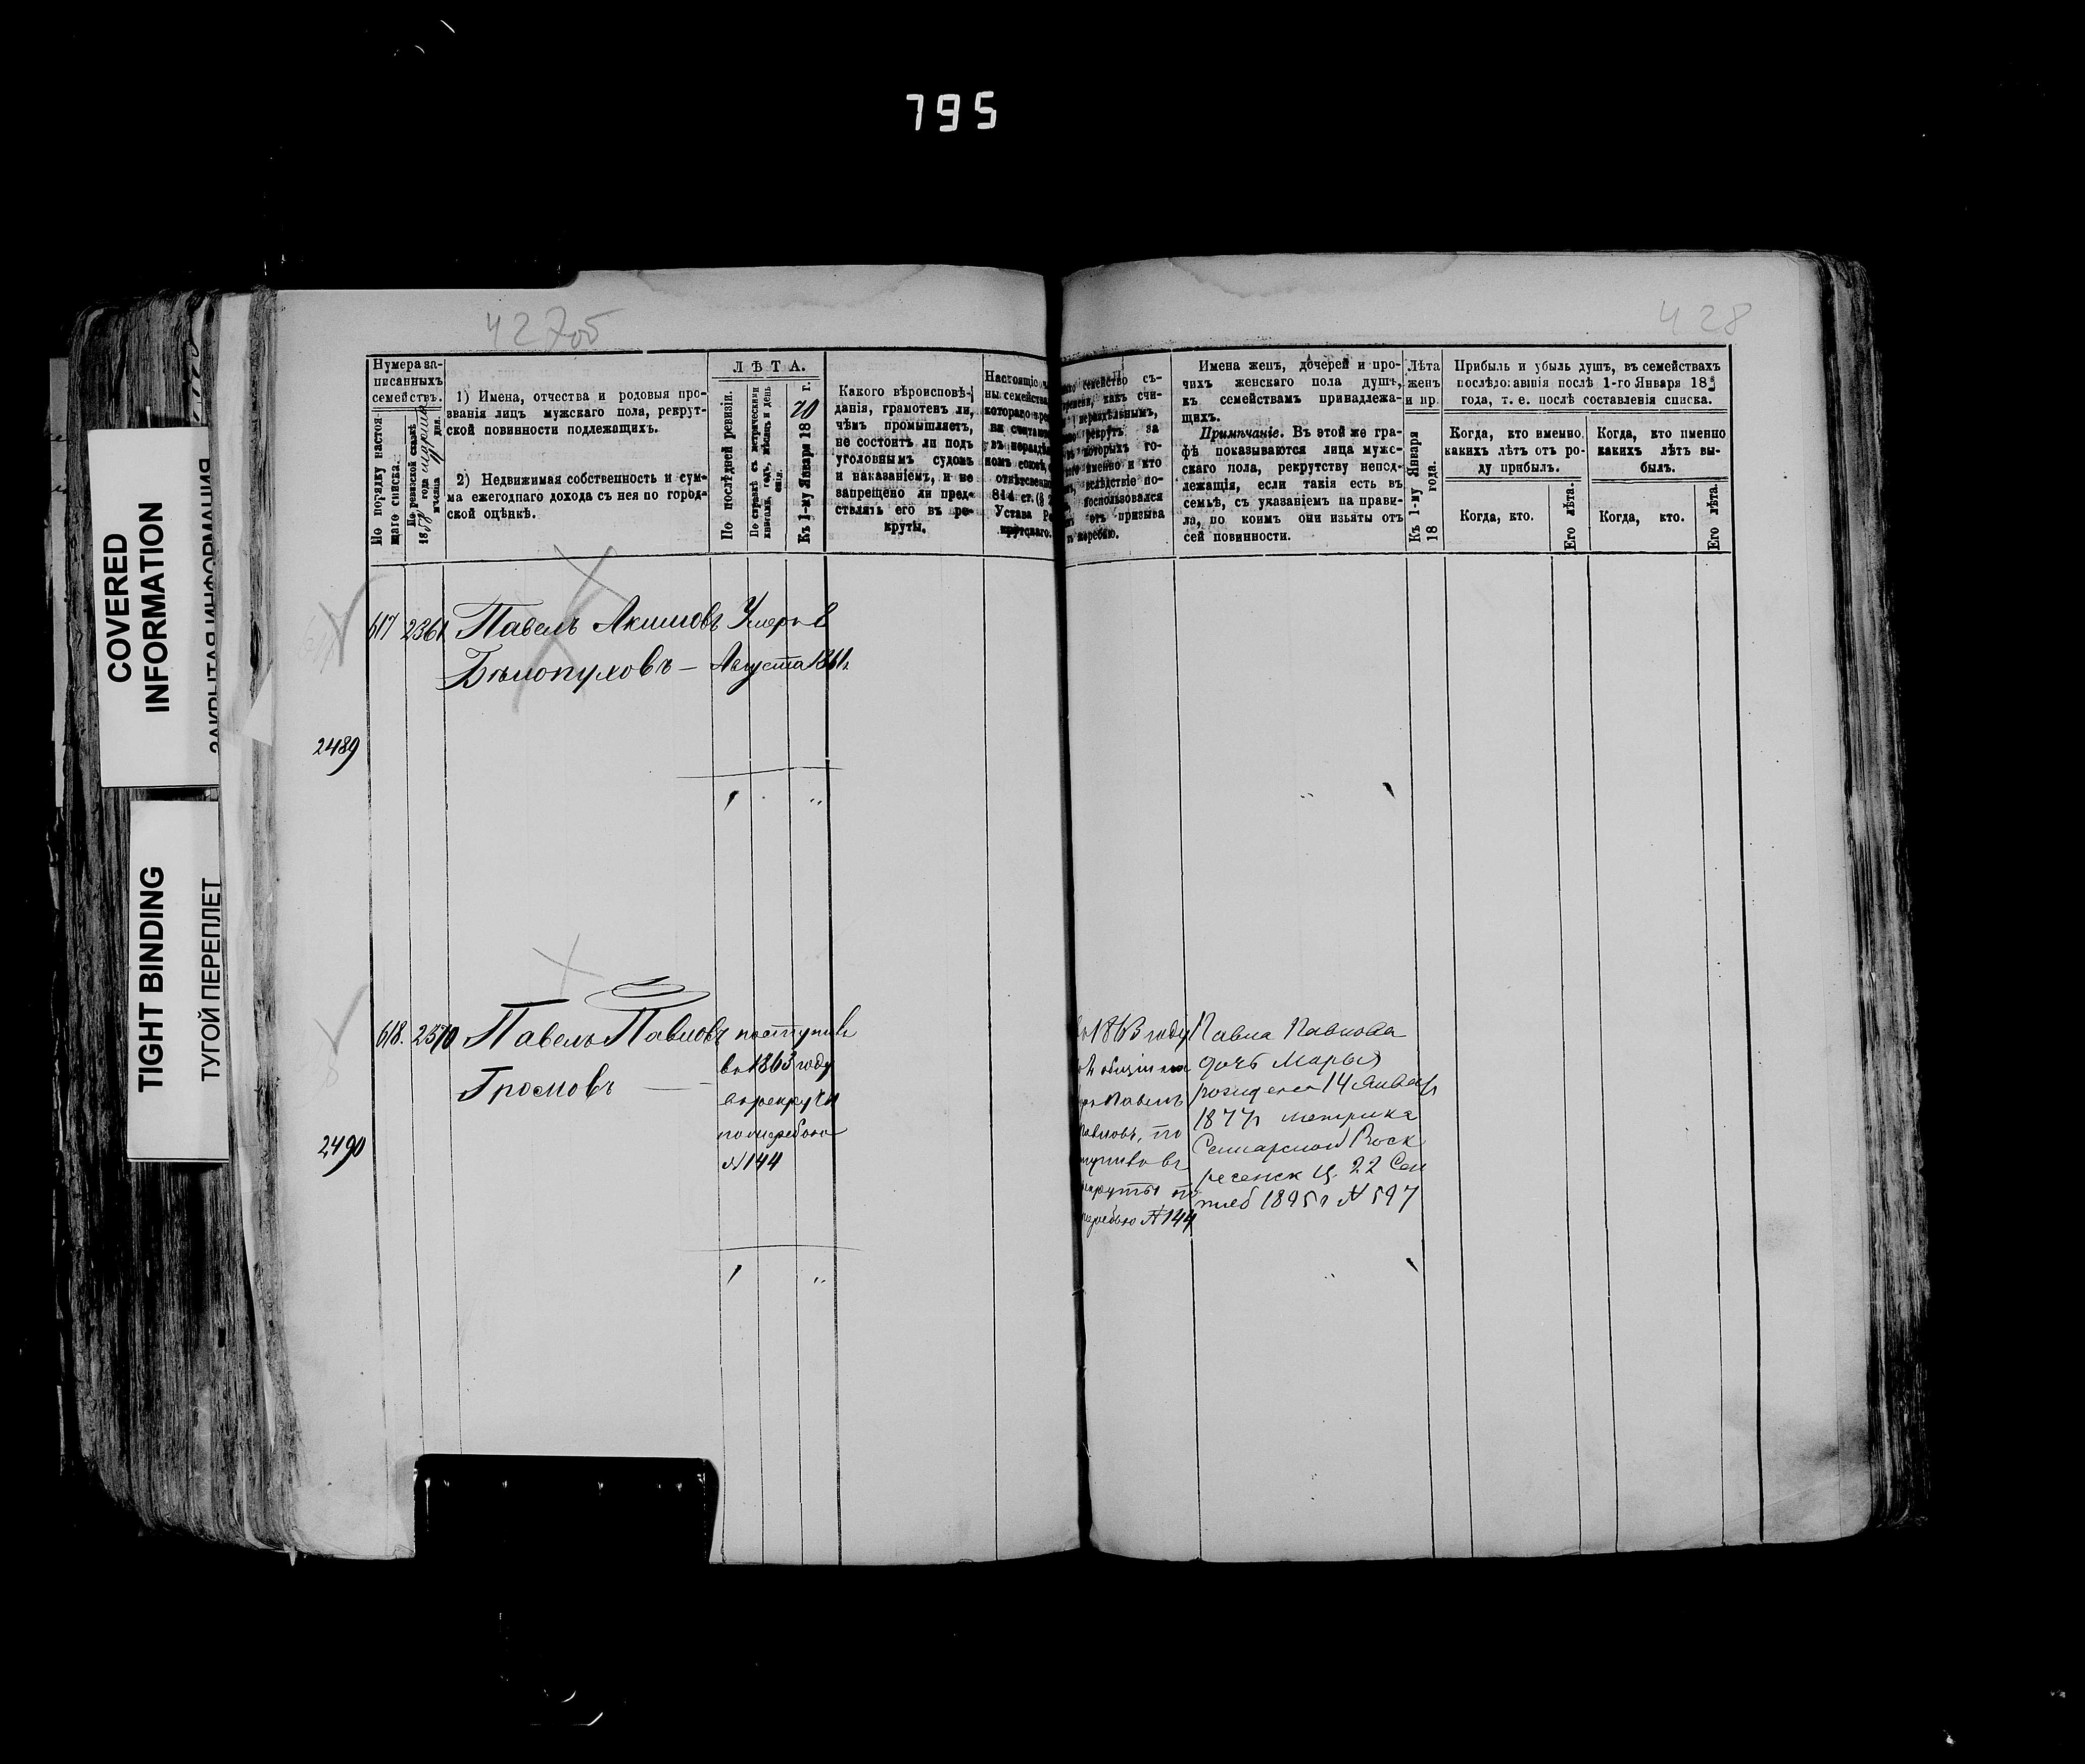 795
427об
428
COVERED
INFORMATION
ЗАКРЫТАЯ ИНФОРМАЦИЯ
TIGHT BINDING
ТУГОЙ ПЕРЕПЛЕТ
Нумера за-
писанныхъ
семействъ.
По порядку настоя-
щаго списка.
По ревизской сказкѣ
1) Имена, отчества и родовыя про-
званія лицъ мужскаго пола, рекрут-
ской повинности подлежащихъ.
2) Недвижимая собственность и сум-
ма ежегоднаго дохода съ нея по город-
ской оцѣнкѣ.
ЛѢТА.
По послѣдней ревизіи.
По справкѣ съ метрическими
книгами, годъ, мѣсяцъ и день
Къ 1-му Января 1870 г.
Какого вѣроисповѣ-
данія, грамотенъ ли,
чѣмъ промышляетъ,
не состоитъ ли подъ
уголовнымъ судомъ
и наказаніемъ, и не
запрещено ли пред-
ствлять его въ ре-
круты.
Настоящіе
ны семейства,
котораго
въ
номъ союзѣ,
814 ст.
Устава Ре-
крутскаго.
семейство съ-
какъ счи-
нераздѣльнымъ,
рекрутъ за
которыхъ го-
именно и кто
вслѣдствіе по-
воспользовался
отъ призыва
жеребью.
Имена женъ, дочерей и про-
чихъ женскаго пола душъ,
къ семействамъ принадлежа-
щихъ.
Примѣчаніе. Въ этой же гра-
фѣ показываются лица мужс-
скаго пола, рекрутству непод-
лежащія, если такія есть въ
семьѣ, съ указаніемъ на прави-
ла, по коимъ они изъяты отъ
сей повинности.
Лѣта
женъ
и пр.
Къ 1-му Января
18 года.
Прибыль и убыль душъ, въ семействахъ
послѣдовавшія послѣ 1-го Января 18
года, т. е. послѣ составленія списка.
Когда, кто именно,
какихъ лѣтъ отъ ро-
ду прибылъ.
Когда, кто именно
какихъ лѣтъ вы-
былъ.
Когда, кто.
Его лѣта.
Когда, кто.
Его лѣта.
617 2361 Павелъ Акимовъ Умеръ 8
Бѣлопуховъ — Августа 1861г
2489
618. 2370 Павелъ Павловъ поступилъ
Громовъ — въ 1863 году
въ рекруты
по жеребью
№ 144
2490
въ 1863 году
Павелъ
Павловъ, по
ступилъ въ
рекруты по
жеребью № 144
Павла Павлова
дочь Марья
рождена 14 Января
1877г метрика
Самарской Воск
ресенск ц. 22 Сен
тяб 1895г № 597